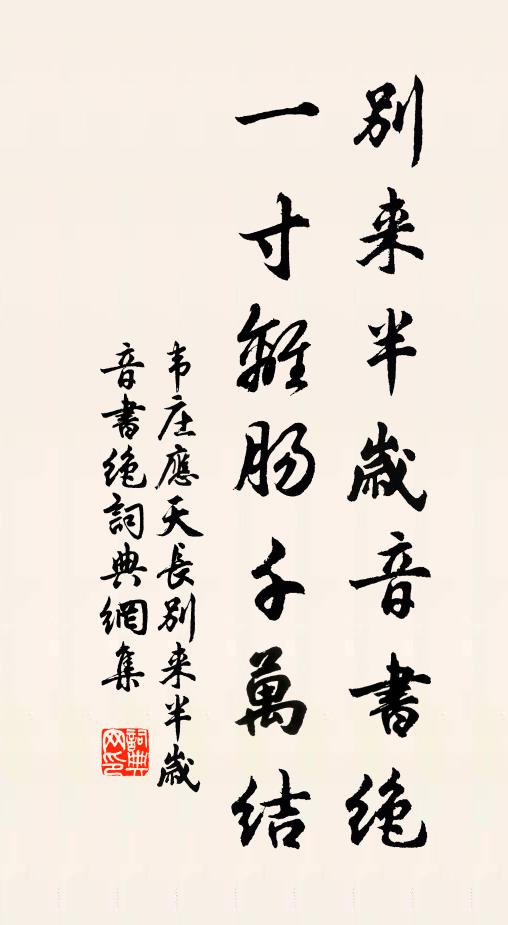 别来半歲音書绝
一寸離肠千萬结
韦庄應天長别来半歲
音書绝詞典網集
詞典
网印